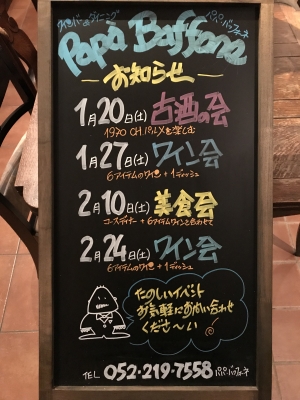 ワインバー＆ダイニング パパ・バッフォーネ
Papa Baffone
お知らせ
1月20日(土) 古酒の会
1990 CH.パルメを楽しむ
1月27日(土) ワイン会
6アイテムのワイン +1ディッシュ
2月10日(土) 美食会
コースディナー + 6アイテムワインと合わせて
2月24日(土) ワイン会
6アイテムのワイン +1ディッシュ
たのしいイベント
お気軽にお問い合わせ
くださ〜い
TEL 052-219-7558 パパ・バッフォーネ